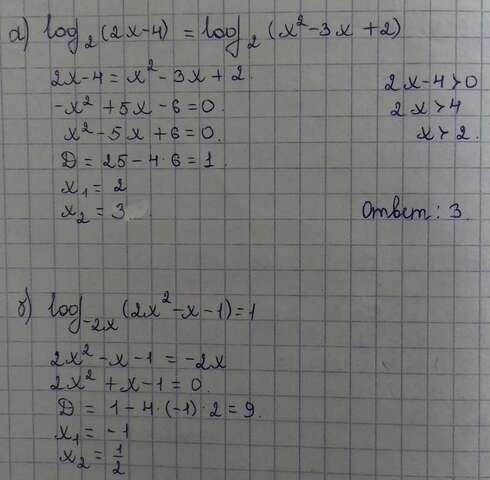 а) log₂(2x-4) = log₂(x²-3x+2)
2x-4 = x²-3x+2.
-x²+5x-6=0.
x²-5x+6=0.
D = 25-4·6=1.
x₁ = 2
x₂ = 3.
2x-4>0
2x>4
x>2.
Ответ: 3.
б) log₋₂ₓ(2x²-x-1)=1
2x²-x-1 = -2x
2x²+x-1=0.
D = 1-4·(-1)·2=9.
x₁ = -1
x₂ = 1/2